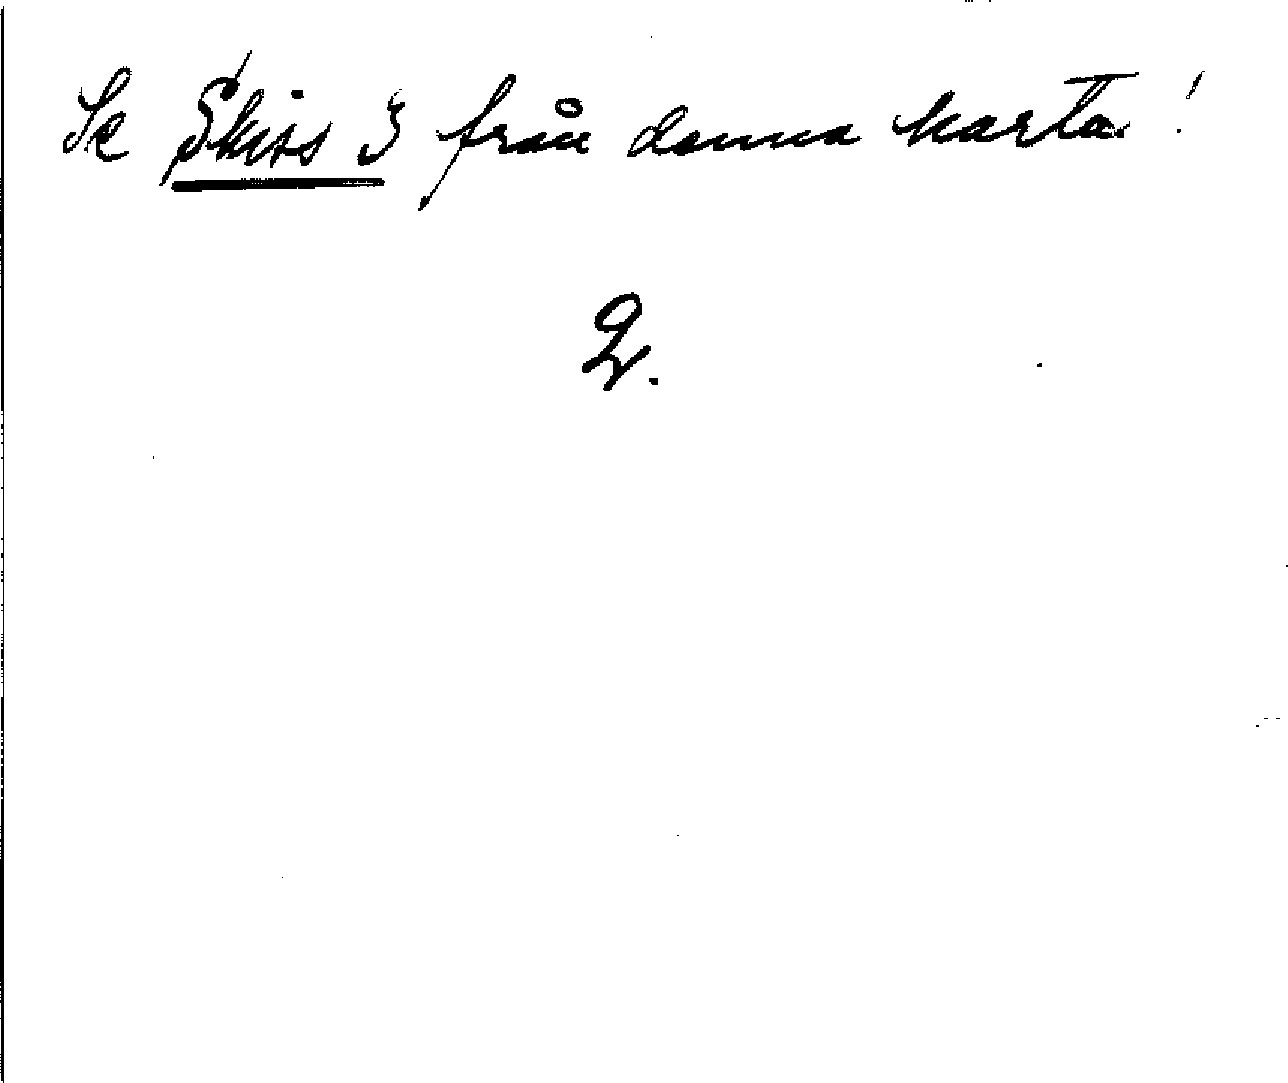 Se Skiss 3 från denna karta!
2.